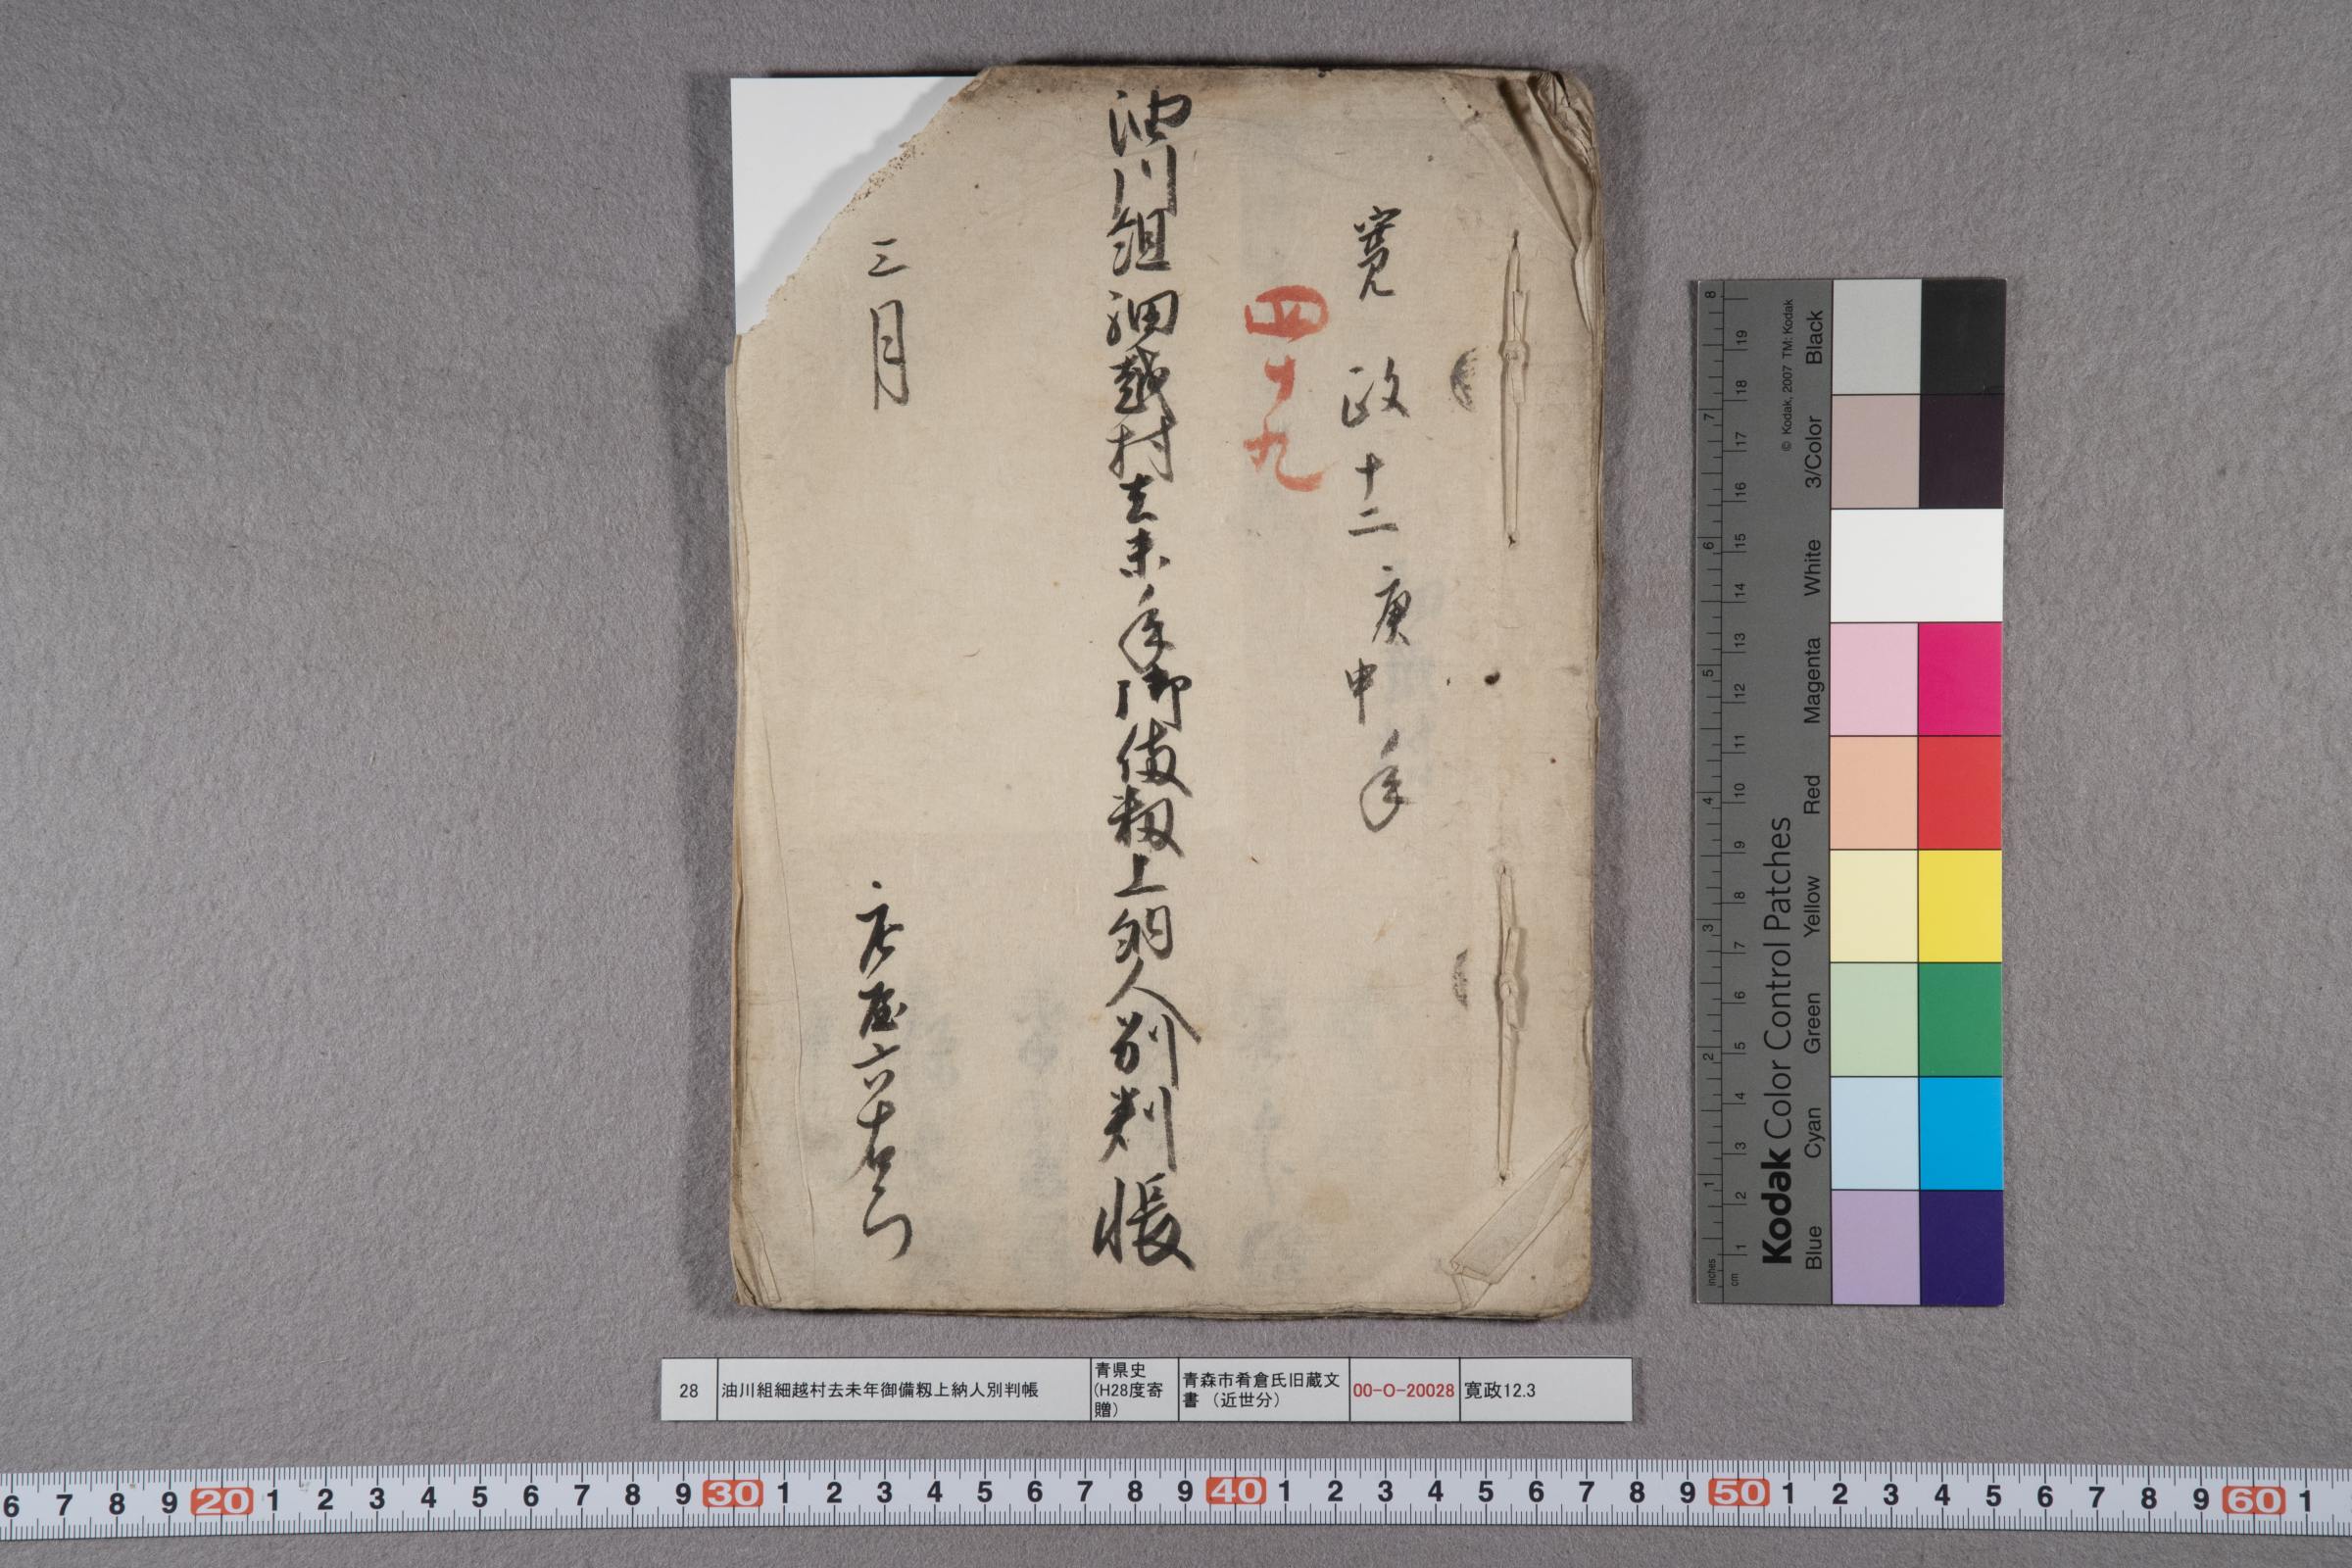 寛政十二庚申年
四十九
油川組細越村去未年御備籾上納人別判帳
三月
庄屋六十右衛門
28
油川組細越村去未年御備籾上納人別判帳
青県史
(H28度寄
贈)
青森市肴倉氏旧蔵文
書 (近世分)
00-O-20028
寛政12.3
© Kodak, 2007 TM: Kodak
Kodak Color Control Patches
Blue Cyan Green Yellow Red Magenta White 3/Color Black
inches 1 2 3 4 5 6 7 8
cm 1 2 3 4 5 6 7 8 9 10 11 12 13 14 15 16 17 18 19
6 7 8 9 20 1 2 3 4 5 6 7 8 9 30 1 2 3 4 5 6 7 8 9 40 1 2 3 4 5 6 7 8 9 50 1 2 3 4 5 6 7 8 9 60 1